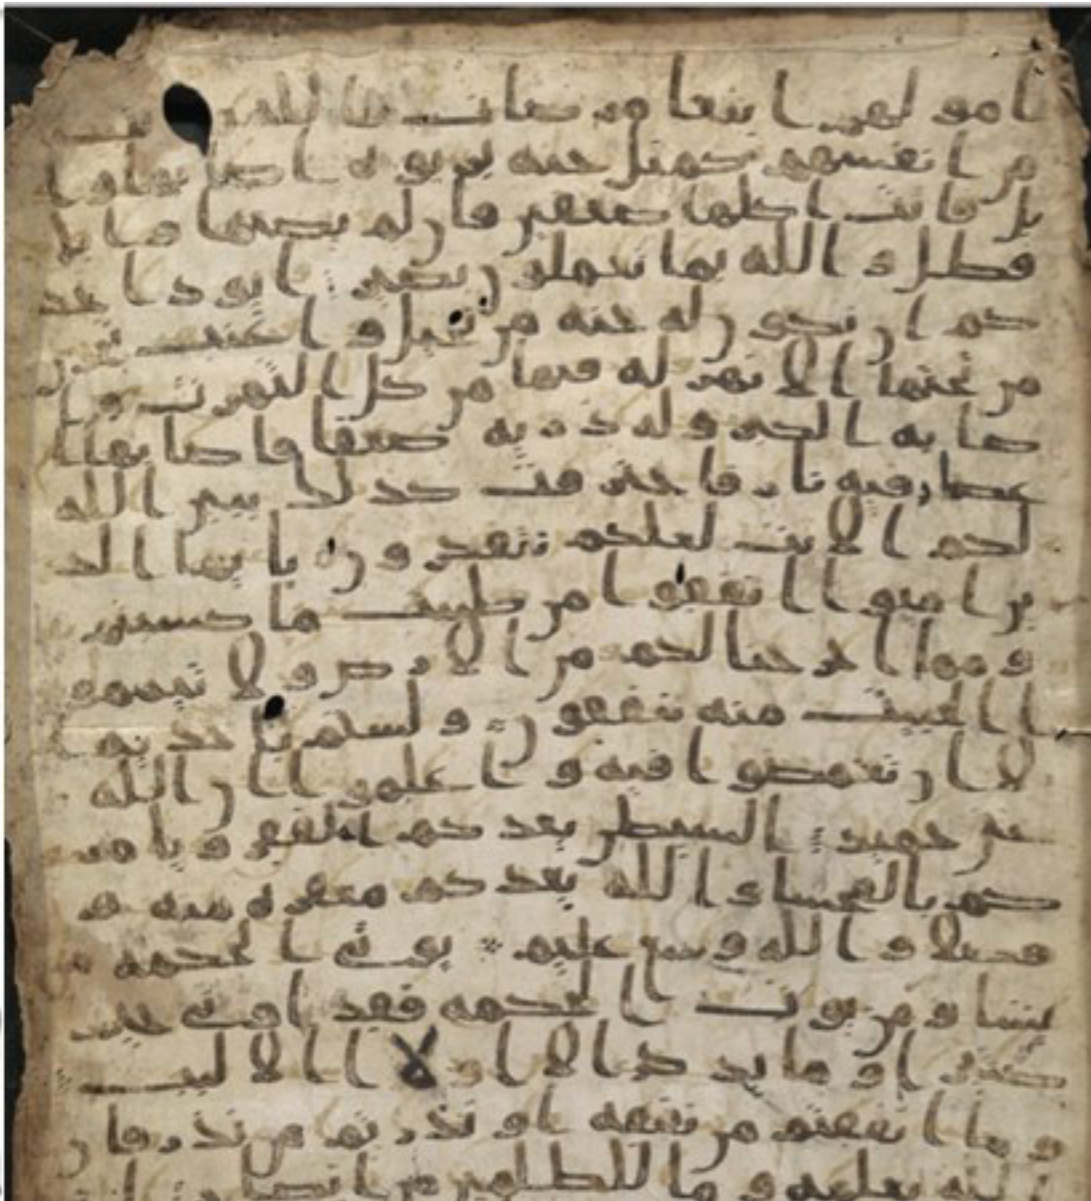 امولهم ابتغا مرضات الله وتثبيتا
من انفسهم كمثل جنه بربوه اصابها وا
بل فاتت اكلها ضعفين فان لم يصبها وابل
فطل والله بما تعملون بصير ايود احد
كم ان تكون له جنه من نخيل واعنب تجري
من تحتها الانهر له فيها من كل الثمرت وا
صابه الكبر وله ذريه ضعفا فاصابها ا
عصار فيه نار فاحترقت كذلك يبين الله
لكم الايت لعلكم تتفكرون يايها الذ
ين امنوا انفقوا من طيبت ما كسبتم
ومما اخرجنا لكم من الارض ولا تيمموا
الخبيث منه تنفقون ولستم باخذيه ا
لا ان تغمضوا فيه واعلموا ان الله
غني حميد الشيطن يعدكم الفقر ويامر
كم بالفحشا والله يعدكم مغفره منه و
فضلا والله وسع عليم يوتي الحكمه من
يشا ومن يوت الحكمه فقد اوتي خير
كثيرا وما يذكر الا اولوا الالبب
وما انفقتم من نفقه او نذرتم من نذر فان
الله يعلمه وما للظلمين من انصار